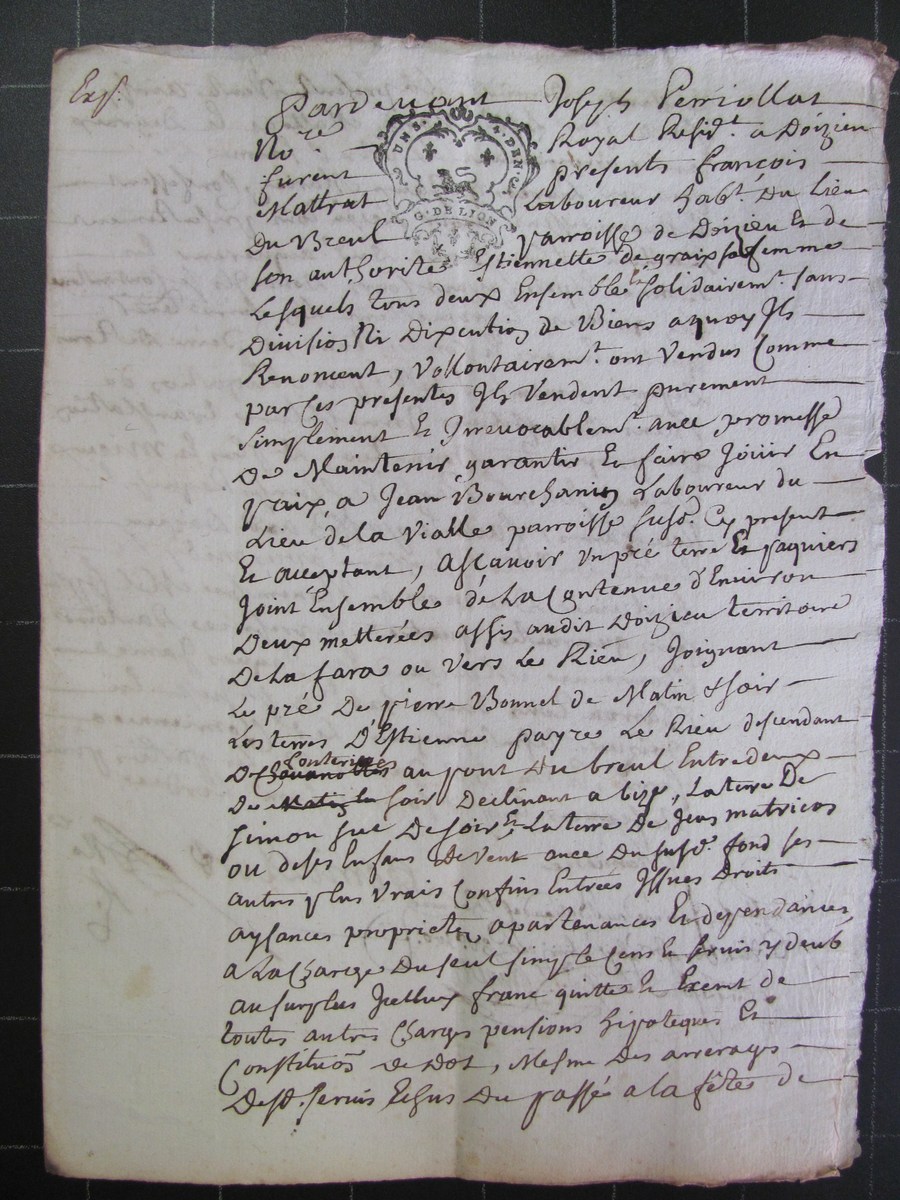 Exp.
Pardevant Joseph Perriollat
No.re Royal Resid.t a Doizieu
furent presents françois
Mattrat Laboureur hab.t du Lieu
Du Breul parroisse de Doizieu Et de
son authorité Estiennette de graix sa femme
Lesquels tous deux Ensemble solidairem.t sans
Division Ni Dixcution de Biens aquoy Ils
Renoncent, Vollontairem.t ont Vendus Comme
par Ces presentes Ils Vendent purement
simplement Et Irrevocablem.t avec promesse
De Maintenir garantir Et faire Jouir En
paix, a Jean Bourchanin Laboureur du
Lieu de la Vialle parroisse susd. Cy present
Et acceptant, Ascavoir Un pré terre Et paquiers
Joint Ensemble de La Contenue d'Environ
Deux metterées assis audit Doizieu territoire
De La fara ou vers Le Rieu, Joignant
Le pré De pierre Bonnel de Matin & soir
Les terres D'Estienne payre Le Rieu descendant
D au pont Du breul Entredeux
De soir Declinant a bize, La terre De
simon sue De soir Et La terre De Jean matricos
ou de ses Enfans de Vent avec Du susd. fond ses
autres plus Vrais Confins Entrées Issues Droits
aysances proprietes apartenances Et dependances
a La Charge Du seul simple Cens Et servis y deub
au surplus Icelluy franc quitte Et Exemt de
toutes autres Charges pensions hipoteques Et
Constituõn de Dot, Mesme Des arrerages
Desd. servis Echus Du passé a la fête de
UN S. 4. DEN.
G. DE LION